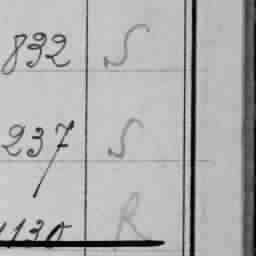 832 S
237 S
1130 R